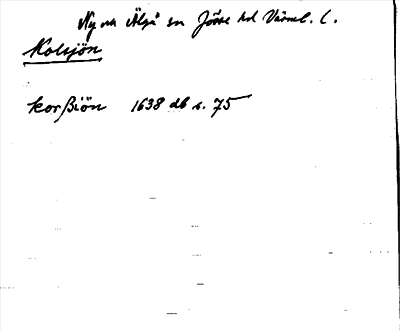 Ny och Älgå sn Jösse hd Värml. l.
Kolsjön
korßiön 1638 db s. 75